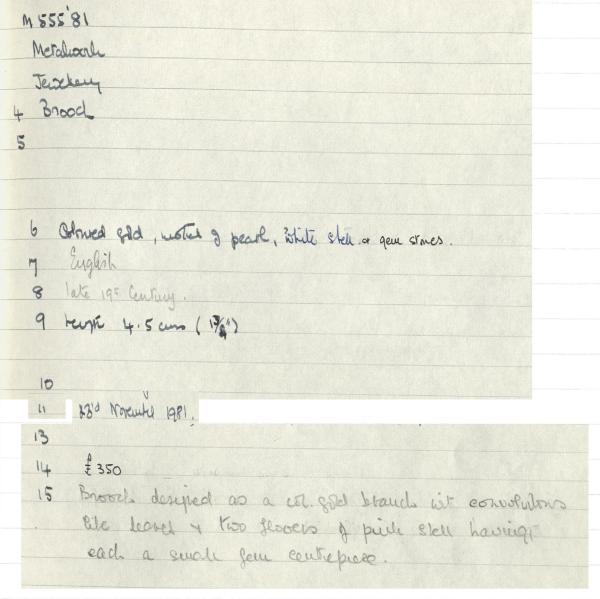 M 555'81
Metalwork
Jewellery
4 Brooch
5
6 Coloured gold, mother of pearl, white shell or gem stones.
7 English
8 late 19th Century.
9 Length 4.5 cms (1 3/4")
10
11 23rd November 1981.
13
14 £350
15 Brooch designed as a col. gold branch with convolvulous
like leaves & two flowers of pink shell having
each a small gem centrepiece.